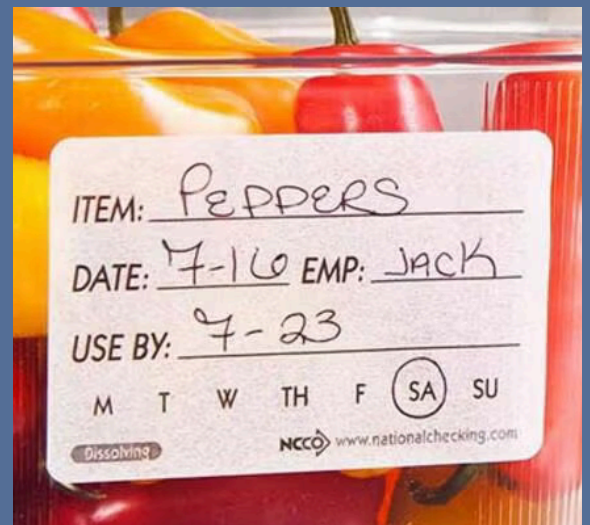 ITEM: PEPPERS
DATE: 7-16 EMP: JACK
USE BY: 7-23
M T W TH F SA SU
Dissolving NCCO www.nationalchecking.com